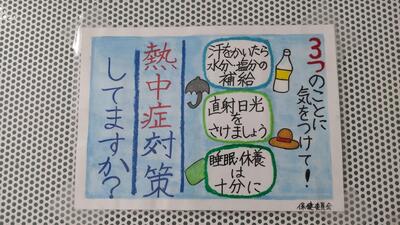 3つのことに
気をつけて！
汗をかいたら
水分・塩分の
補給
直射日光
を
さけましょう
睡眠・休養
は
十分に
熱中症対策
してますか？
保健委員会